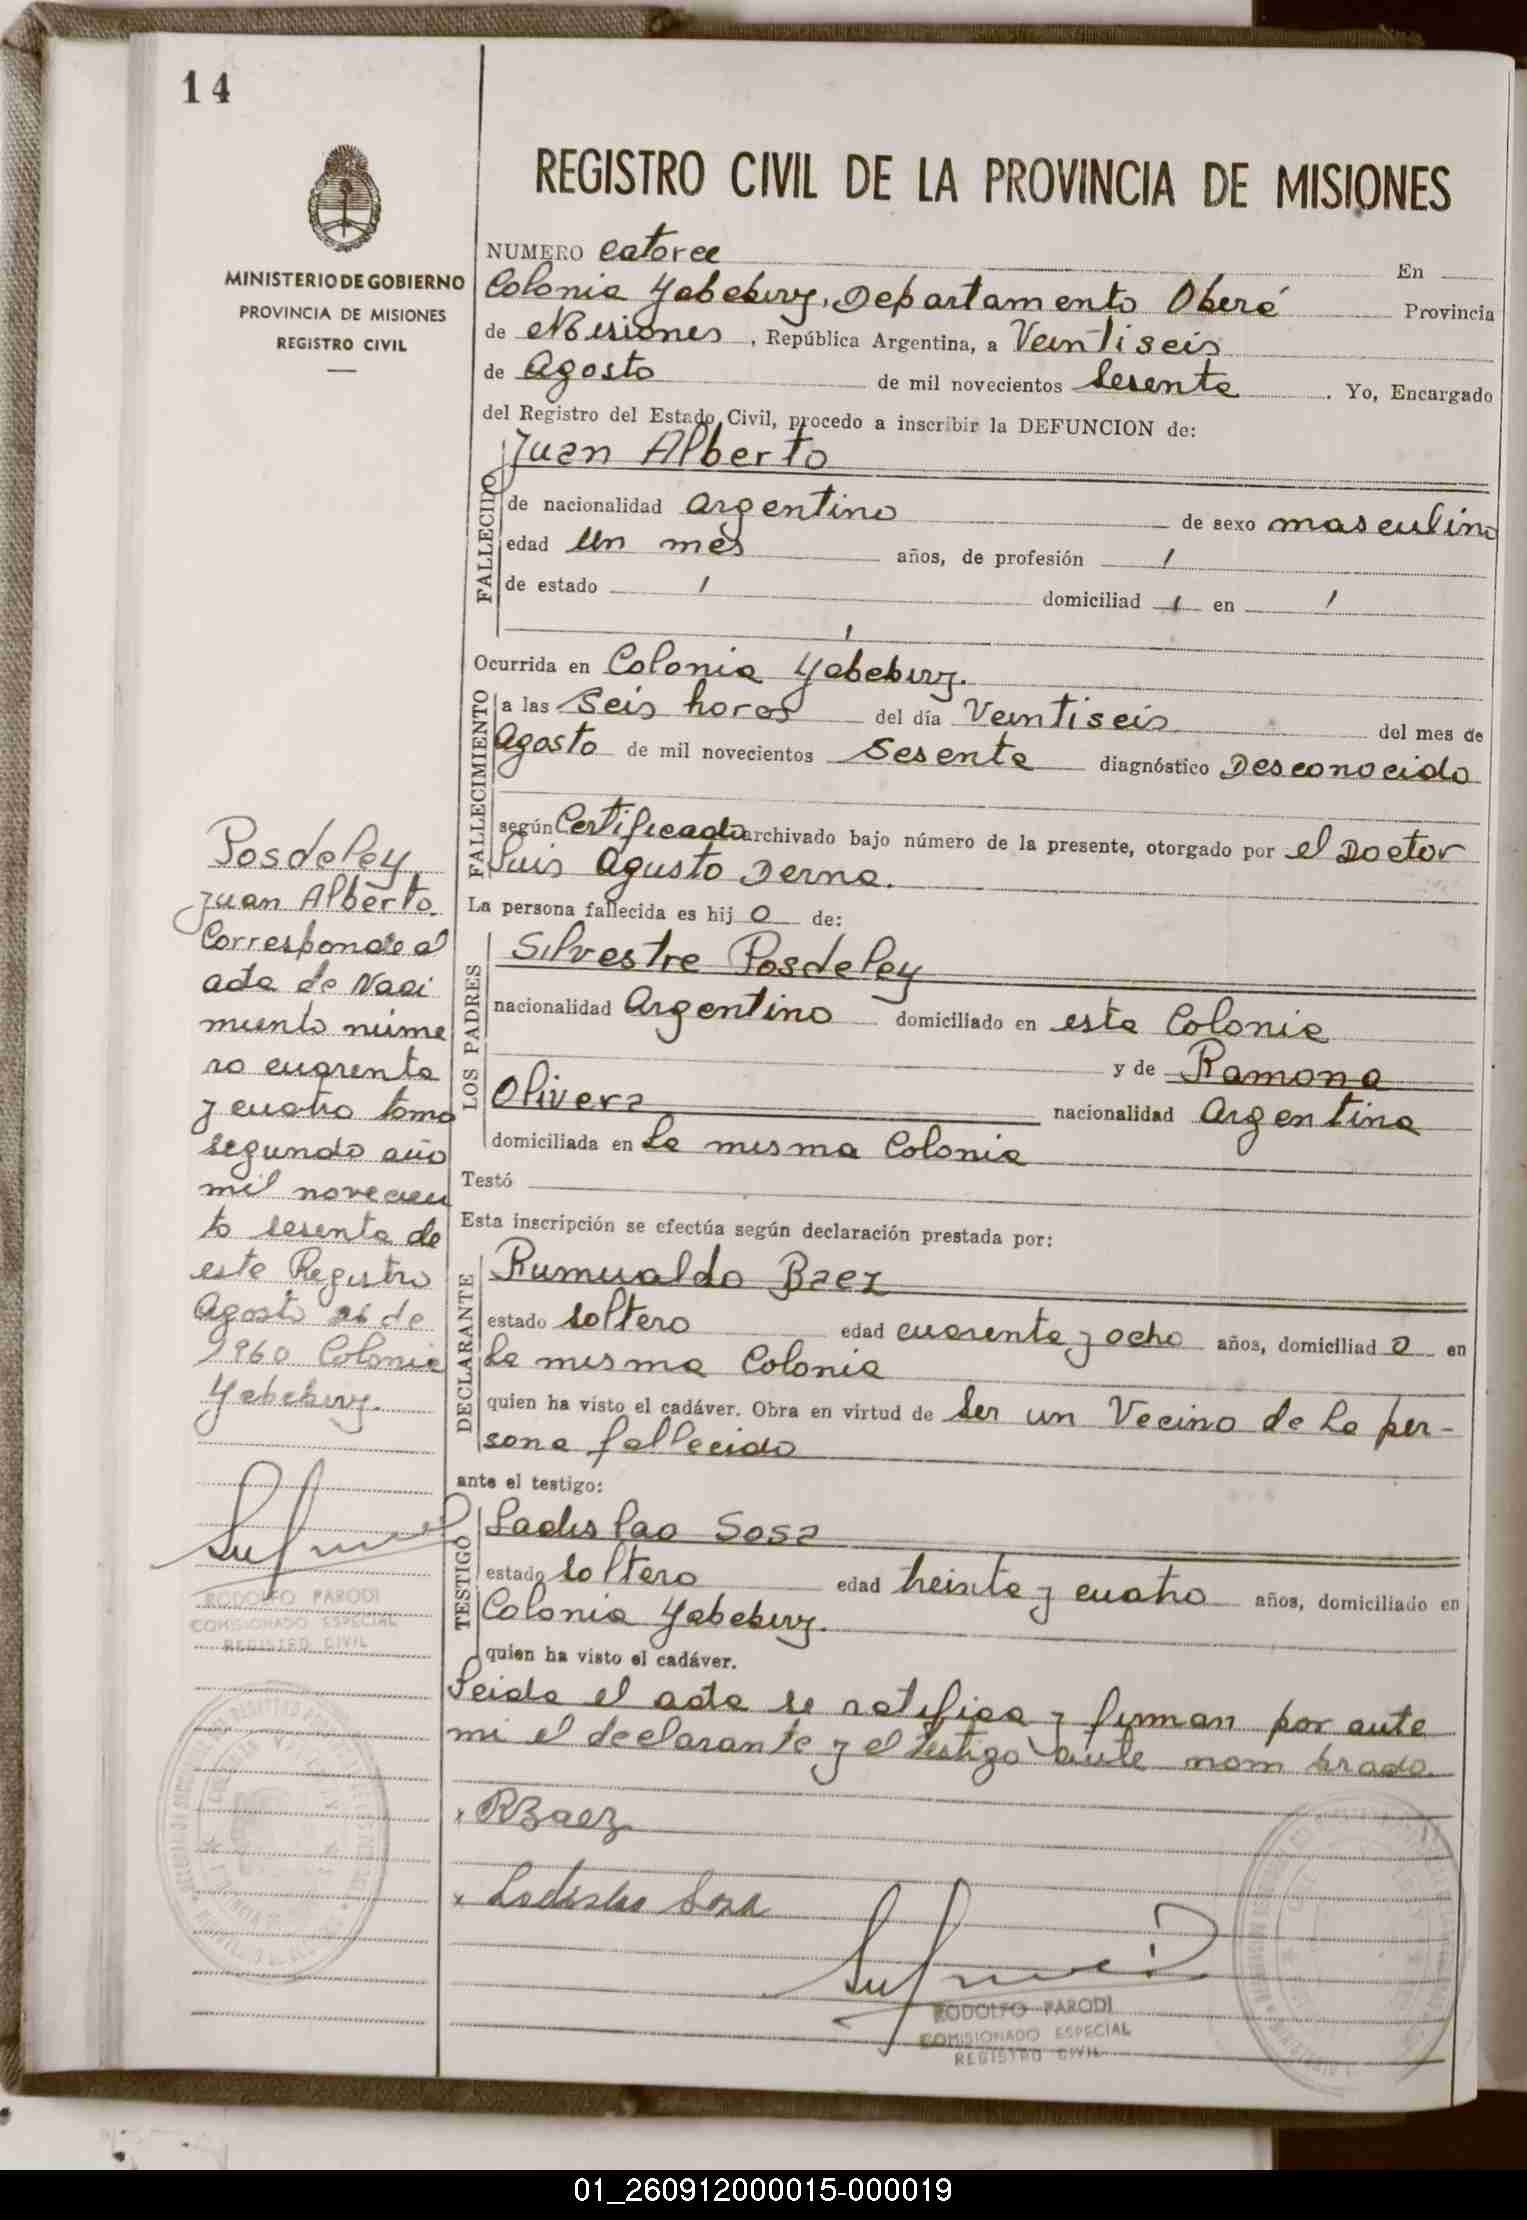 14
MINISTERIO DE GOBIERNO
PROVINCIA DE MISIONES
REGISTRO CIVIL
REGISTRO CIVIL DE LA PROVINCIA DE MISIONES
NUMERO catorce En
Colonia Yabebiry, Departamento Oberá Provincia
de Misiones, República Argentina, a Veintiseis
de Agosto de mil novecientos sesenta. Yo, Encargado
del Registro del Estado Civil, procedo a inscribir la DEFUNCION de:
FALLECIDO
Juan Alberto
de nacionalidad argentino de sexo masculino
edad un mes años, de profesión /
de estado / domiciliad / en /
/
Ocurrida en Colonia Yabebiry.
FALLECIMIENTO
a las seis horas del día Veintiseis del mes de
Agosto de mil novecientos sesenta diagnóstico Desconocido
según Certificado archivado bajo número de la presente, otorgado por el Doctor
Luis Agusto Derna.
La persona fallecida es hij o de:
LOS PADRES
Silvestre Posdeley
nacionalidad Argentino domiciliado en esta Colonia
y de Ramona
Olivera nacionalidad Argentina
domiciliada en la misma Colonia
Testó
Esta inscripción se efectúa según declaración prestada por:
DECLARANTE
Rumualdo Baez
estado soltero edad cuarenta y ocho años, domiciliad o en
la misma Colonia
quien ha visto el cadáver. Obra en virtud de ser un Vecino de la per-
sona fallecido
ante el testigo:
TESTIGO
Ladislao Sosa
estado soltero edad treinta y cuatro años, domiciliado en
Colonia Yabebiry.
quien ha visto el cadáver.
Leida el acta se ratifica y firman por ante
mi el declarante y el testigo ante nombrado
RBaez
Ladislao Sosa
RODOLFO PARODI
COMISIONADO ESPECIAL
REGISTRO CIVIL
Posdeley
Juan Alberto.
Corresponde al
acta de Naci
miento núme
ro cuarenta
y cuatro tomo
segundo año
mil novecien
to sesenta de
este Registro
Agosto 26 de
1960 Colonia
Yabebiry.
RODOLFO PARODI
COMISIONADO ESPECIAL
REGISTRO CIVIL
01_260912000015-000019